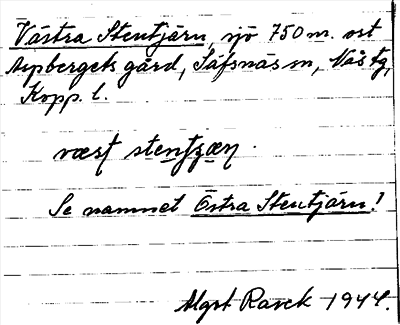 Västra Stentjärn, sjö 750 m. ost
Aspbergets gård, Säfsnäs sn, Nås tg,
Kopp. l.
væst stentjæɳ.
Se namnet Östra Stentjärn!
Algot Rasck 1944.